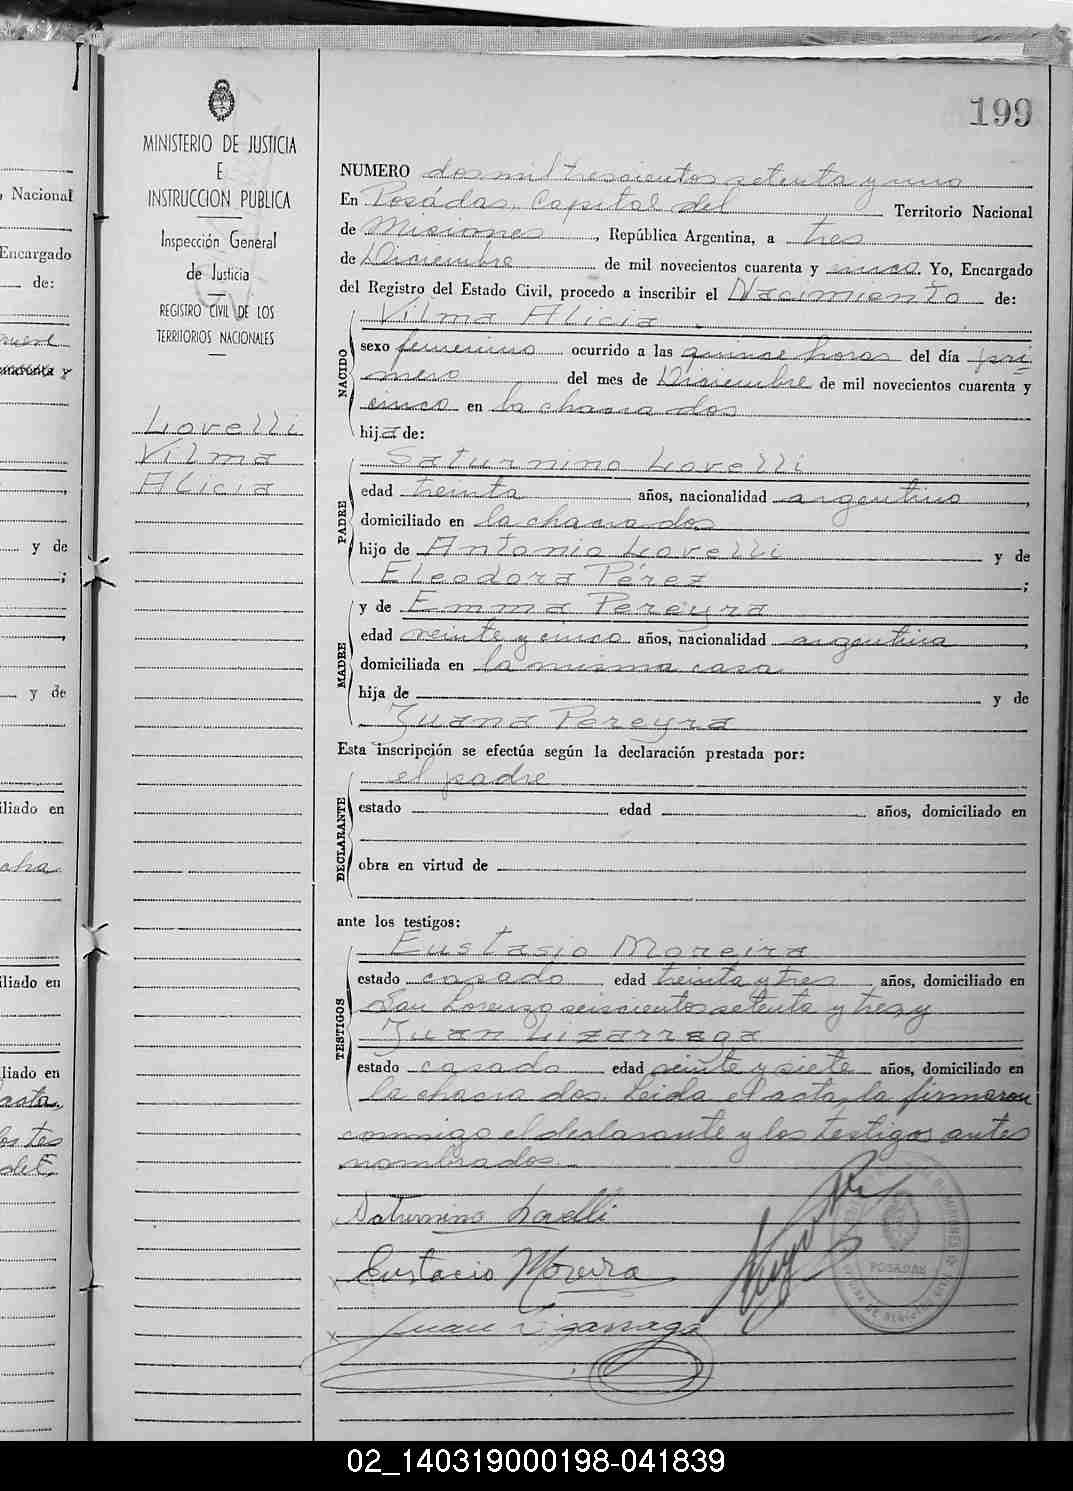 199
MINISTERIO DE JUSTICIA
E
INSTRUCCION PUBLICA
Inspección General
de Justicia
REGISTRO CIVIL DE LOS
TERRITORIOS NACIONALES
Lovelli
Vilma
Alicia
NUMERO dos mil trescientos setenta y uno
En Posádas, Capital del Territorio Nacional
de Misiones, República Argentina, a tres
de Diciembre de mil novecientos cuarenta y cinco. Yo, Encargado
del Registro del Estado Civil, procedo a inscribir el Nacimiento de:
NACIDO
Vilma Alicia.
sexo femenino ocurrido a las quince horas del día pri-
mero del mes de Diciembre de mil novecientos cuarenta y
cinco en la chacra dos
hija de:
PADRE
Saturnino Lovelli
edad treinta años, nacionalidad argentino,
domiciliado en la chacra dos
hijo de Antonio Lovelli y de
Eleodora Pérez;
MADRE
y de Emma Pereyra
edad veinte y cinco años, nacionalidad argentina,
domiciliada en la misma casa
hija de y de
Juana Pereyra
Esta inscripción se efectúa según la declaración prestada por:
DECLARANTE
el padre
estado edad años, domiciliado en
obra en virtud de
ante los testigos:
TESTIGOS
Eustasio Moreira
estado casado edad treinta y tres años, domiciliado en
San Lorenzo seiscientos setenta y tres y
Juan Lizarraga
estado casado edad veinte y siete años, domiciliado en
la chacra dos. Leida el acta, la firmaron
conmigo el declarante y los testigos antes
nombrados.
Saturnino Lovelli
Eustacio Moreira
Juan Lizarraga
POSADAS
, Nacional
Encargado
de:
y de
;
y de
iliado en
iliado en
liado en
02_140319000198-041839